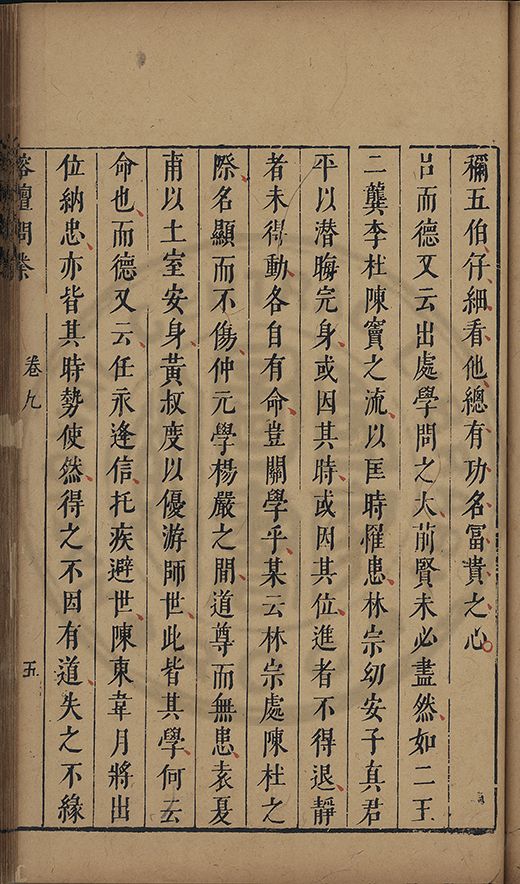 稱五伯仔細看他總有功名冨貴之心
呂而德又云出處學問之大前賢未必盡然如二王
二龔李杜陳竇之流以匡時懼患林宗幼安子真君
平以潛晦完身或因其時或因其位進者不得退靜
者未得動各自有命豈關學乎某云林宗處陳杜之
際名顯而不傷仲元學楊嚴之間道尊而無患袁夏
甫以土室安身黃叔度以優游師世此皆其學何云
命也而德又云任永逢信托疾避世陳東韋月將出
位納忠亦皆其時勢使然得之不因有道失之不緣
榕壇問業
卷九
五